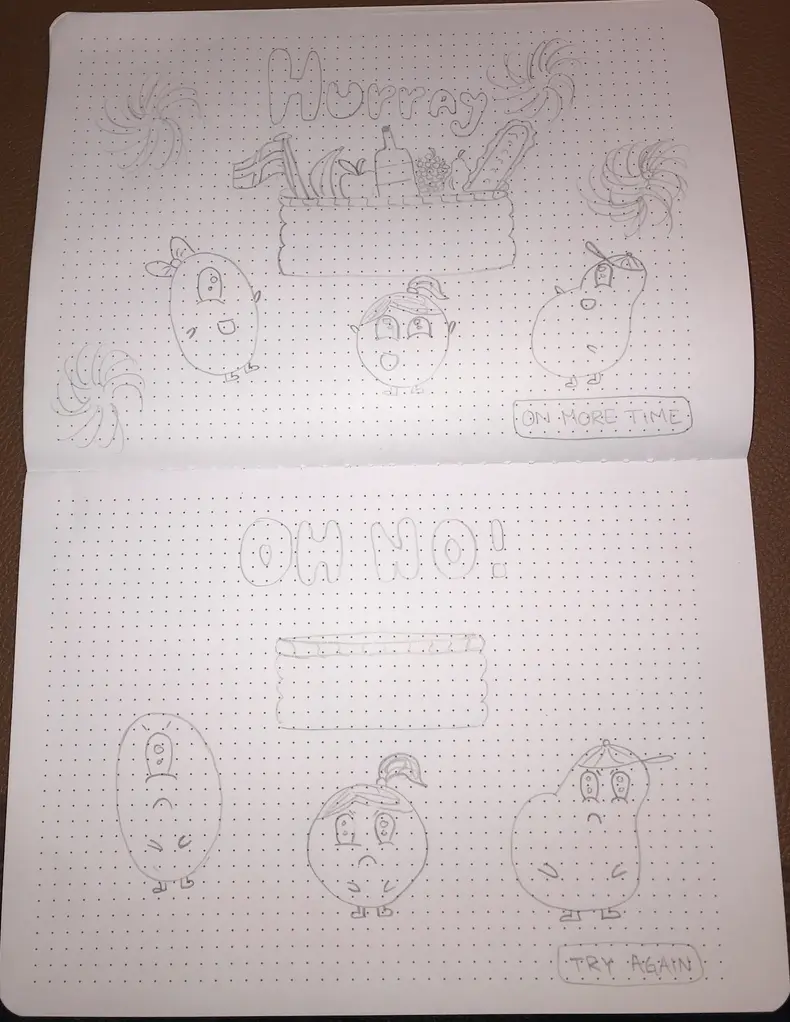 Hurray
ON MORE TIME
OH NO!
TRY AGAIN